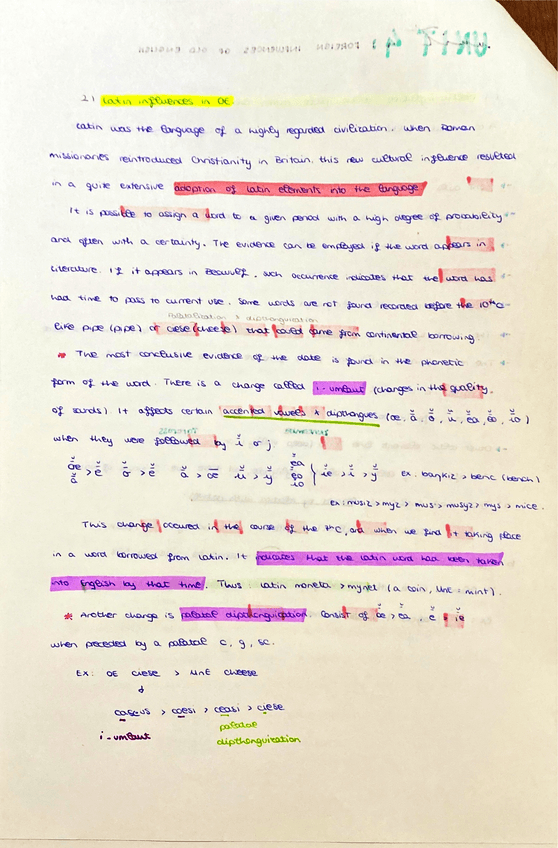 2) Latin influences in OE.
Latin was the language of a highly regarded civilization. When Roman
missionaries reintroduced Christianity in Britain, this new cultural influence resulted
in a quite extensive adoption of latin elements into the language.
It is possible to assign a word to a given period with a high degree of probability
and often with a certainty. The evidence can be employed if the word appears in
literature. If it appears in Beowulf, such occurrence indicates that the word has
had time to pass to current use. Some words are not found recorded before the 10thC
Palatalization & dipthonguization
like pipe (pipe) or ciese (cheese) that could come from continental borrowing
* The most conclusive evidence of the date is found in the phonetic
form of the word. There is a change called i-umlaut (changes in the quality
of sounds) It affects certain accented vowels & dipthongues
when they were followed by i or j
ex. bankiz > benc (bench)
ex: musiz > myz > mus > musyz > mys > mice.
This change occured in the course of the 7thC, and when we find it taking place
in a word borrowed from latin. It indicates that the latin word had been taken
into English by that time. Thus: latin moneta > mynet (a coin, MnE: mint).
* Another change is palatal dipthonguization. Consist of æ > ea, e > ie
when preceded by a palatal c, g, sc.
EX: OE ciese > MnE cheese
caseus > cæsi > ceasi > ciese
i-umlaut
palatal
dipthonguization